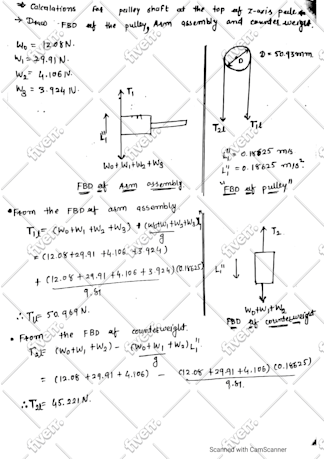 ⇒ Calculations for pulley shaft at the top of Z-axis pole
→ Draw FBD of the pulley, Arm assembly and counter weight.
W₀ = 12.08 N.
W₁ = 29.91 N.
W₂ = 4.106 N.
W₃ = 3.924 N
T₁
L₁''
W₀+W₁+W₂+W₃
FBD of Arm assembly
D
D = 50.93mm
T₂l
T₁l
L₁'' = 0.18625 m/s
L₁'' = 0.18625 m/s².
"FBD of pulley"
• From the FBD of arm assembly
T₁l = (W₀+W₁+W₂+W₃) + (W₀+W₁+W₂+W₃)L₁''/g
= (12.08+29.91+4.106+3.924)
+ (12.08+29.91+4.106+3.924)(0.18625)/9.81
∴ T₁l = 50.969 N.
T₂
L₁''
W₀+W₁+W₂
FBD of counterweight
• From the FBD of counterweight
T₂l = (W₀+W₁+W₂) - (W₀+W₁+W₂)L₁''/g
= (12.08+29.91+4.106) - (12.08+29.91+4.106)(0.18625)/9.81.
∴ T₂l = 45.221 N.
Scanned with CamScanner
fiverr.